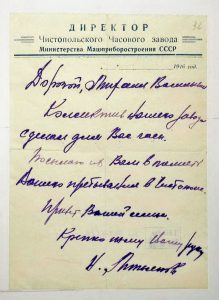 ДИРЕКТОР
Чистопольского Часового завода
Министерства Машприборостроения СССР
1946 год.
Дорогой,
Коллектив нашего завода
сделал для Вас часы.
Посылаю их Вам в память
Вашего пребывания в Чистополе.
Привет Вашей семье.
Крепко жму Вашу руку